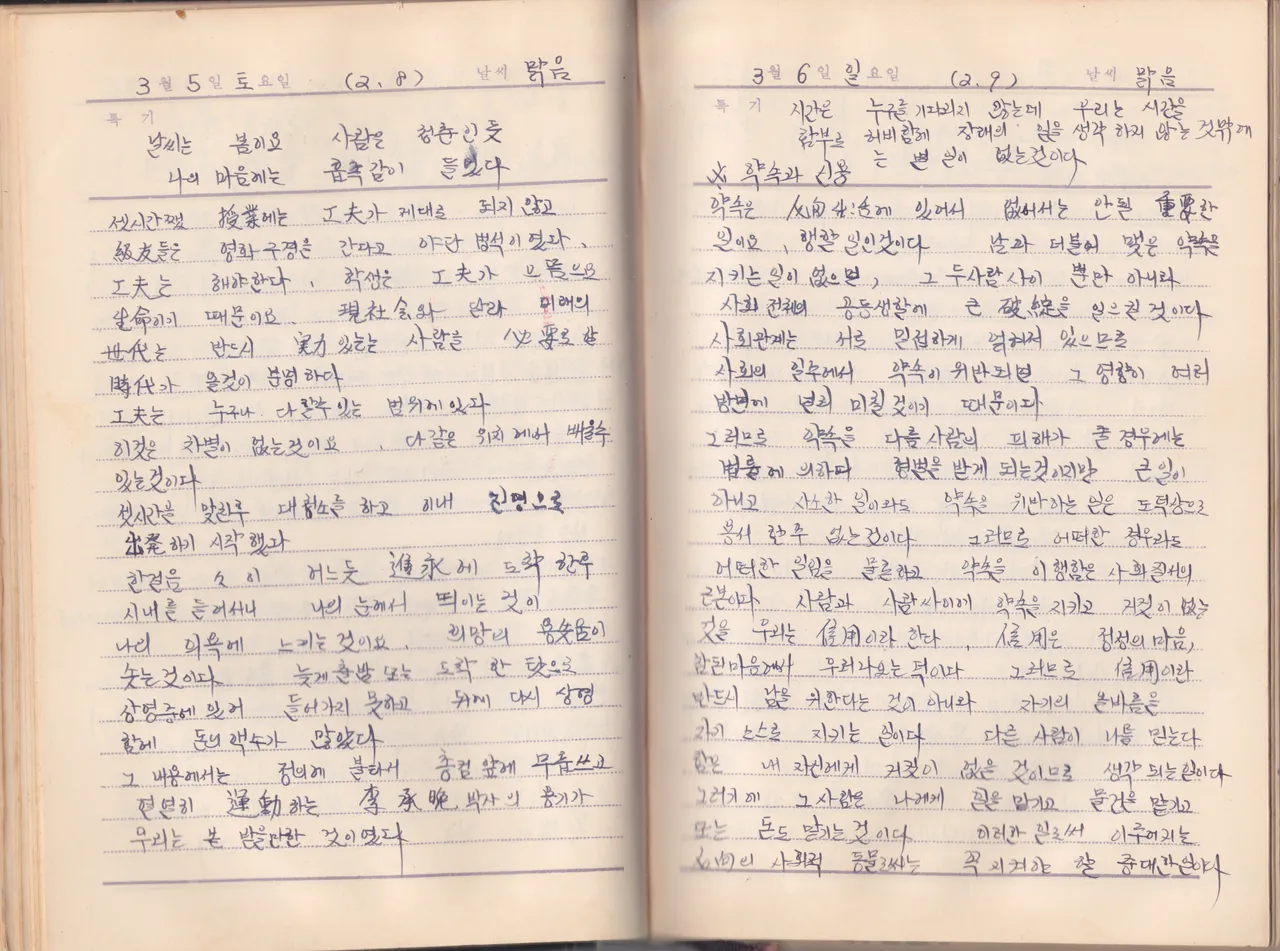 3월 5일 토요일 (2. 8) 날씨 맑음
특기
날씨는 봄이요 사람은 청춘인 듯
나의 마음에는 꿈같이 들었다
셋시간쨌 授業에는 工夫가 제대로 되지 않고
級友들은 영화 구경을 간다고 야단 법석이였다.
工夫는 해야한다. 학생은 工夫가 으뜸으요
生命이기 때문이요. 現社会와 달라 미래의
世代는 반드시 実力 있는는 사람을 必要로 할
時代가 올것이 분명하다
工夫는 누구나 다 할수 있는 범위에 있다
이것은 차별이 없는것이요. 다 같은 위치에서 배울수
있는것이다
셋시간을 맟친후 대청소를 하고 이내 진영으로
出発하기 시작했다
한걸음 어느듯 進永에 도착한후
시내를 들어서니 나의 눈에서 띄이는 것이
나의 의욕에 느끼는것이요. 희망의 용솟음이
솟는것이다 늦게 출발 또는 도착 한 탓으로
상영중에 있어 들어가지 못하고 뒤에 다시 상영
함에 돈의 액수가 많았다
그 내용에서는 정의에 불타서 총검 앞에 무릅쓰고
열열히 運動하는 李承晩 박사의 용기가
우리는 본 받을만한 것이였다
3월 6일 일요일 (2. 9) 날씨 맑음
특기 시간은 누구를 기다리지 않는데 우리는 시간을
함부로 허비함에 장래의 일을 생각 하지 않는 것밖에
는 별 일이 없는것이다
약속과 신용
약속은 人間生活에 있어서 없어서는 안될 重要한
일이요, 행할 일인것이다 남과 더불어 맺은 약속을
지키는 일이 없으면, 그 두사람 사이 뿐만 아니라
사회 전체의 공동생활에 큰 破綻을 일으킬 것이다
사회관계는 서로 밀접하게 얽혀져 있으므로
사회의 일수에서 약속이 위반되면 그 영향이 여러
방면에 널리 미칠 것이기 때문이다
그러므로 약속을 다름 사람의 피해가 줄 경우에는
법률에 의하며 형벌을 받게 되는것이지만 큰 일이
아니고 사소한 일이라도 약속을 위반하는 일은 도덕상으로
용서 할 수 없는것이다 그러므로 어떠한 경우라도
어떠한 일임을 물론하고 약속을 이행함은 사회질서의
근본이다 사람과 사람싸이에 약속을 지키고 거짓이 없는
것을 우리는 信用이라 한다. 信用은 정정의 마음,
참된마음에서 우러나오는 덕이다 그러므로 信用이라
반드시 남을 위한다는 것이 아니라 자기의 올바름을
자기 스스로 지키는 일이다 다른 사람이 나를 믿는다
함은 내 자신에게 거짓이 없은 것이므로 생각되는일이다
그러기에 그 사람은 나에게 일을 맡기고 물건을 맡기고
또는 돈도 맡기는것이다 이러한 일로써 이루어지는
人間의 사회적 동물로써는 꼭 지켜야 할 중대한일이다